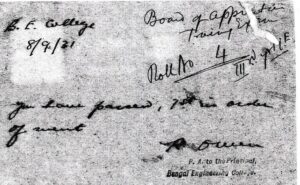 B. E. College
8/9/21
Board of
Roll No 4
III
you have passed, 1st in order
of merit
P. A. to the Principal,
Bengal Engineering College.